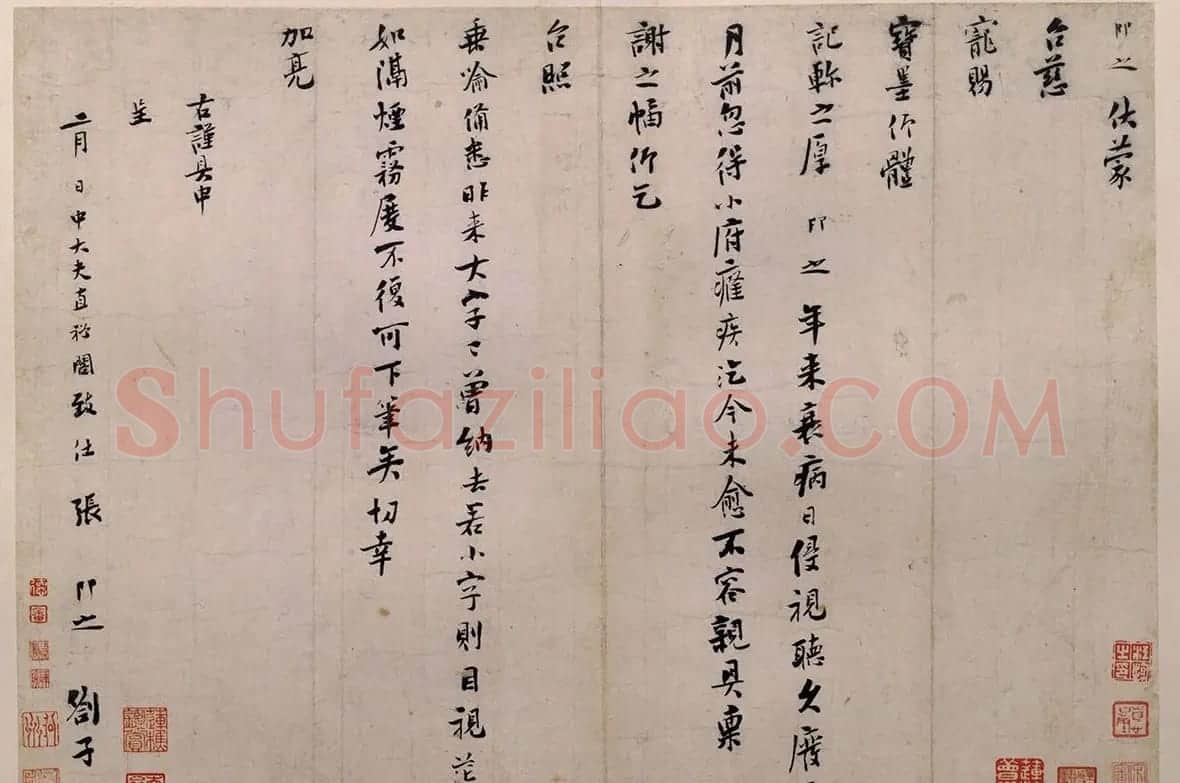 即之 伏蒙
台慈
寵賜
寶墨仰體
記軫之厚 即之 年来衰病日侵視聽久廢
月前忽得小府癃疾迄今未愈不容親具稟
謝之幅仰乞
台照
垂喻備悉昨来大字々曽納去若小字則目視茫
如滿煙霧屡不復可下筆矣切幸
加亮
右謹具申
呈
二月 日中大夫直祕閣致仕 張 即之 劄子
Shufaziliao.COM